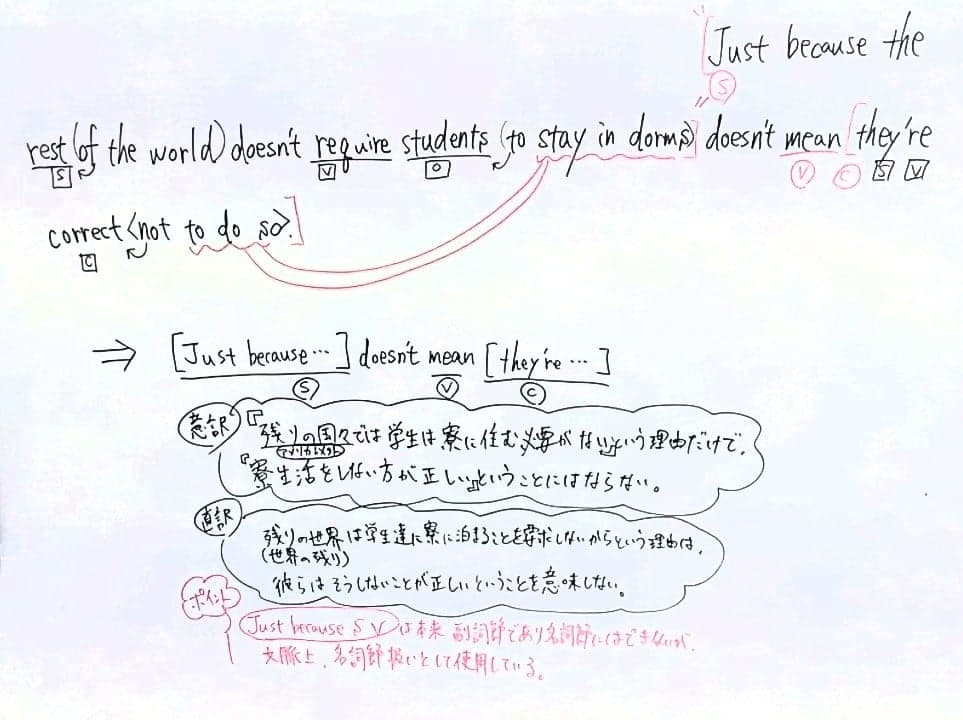 Just because the
Ⓢ
rest (of the world) doesn't require students (to stay in dorms) doesn't mean [they're
S V O Ⓥ Ⓒ S V
correct <not to do so>.]
C
⇒ [Just because…] doesn't mean [they're…]
Ⓢ Ⓥ Ⓒ
意訳 『残りの国々では学生は寮に住む必要がない』という理由だけで、
『寮生活をしない方が正しい』ということにはならない。
直訳 残りの世界は学生達に寮に泊まることを要求しないからという理由は、
(世界の残り)
彼らはそうしないことが正しいということを意味しない。
ポイント
Just because S V は本来 副詞節であり名詞節にはできないが、
文脈上、名詞節扱いとして使用している。